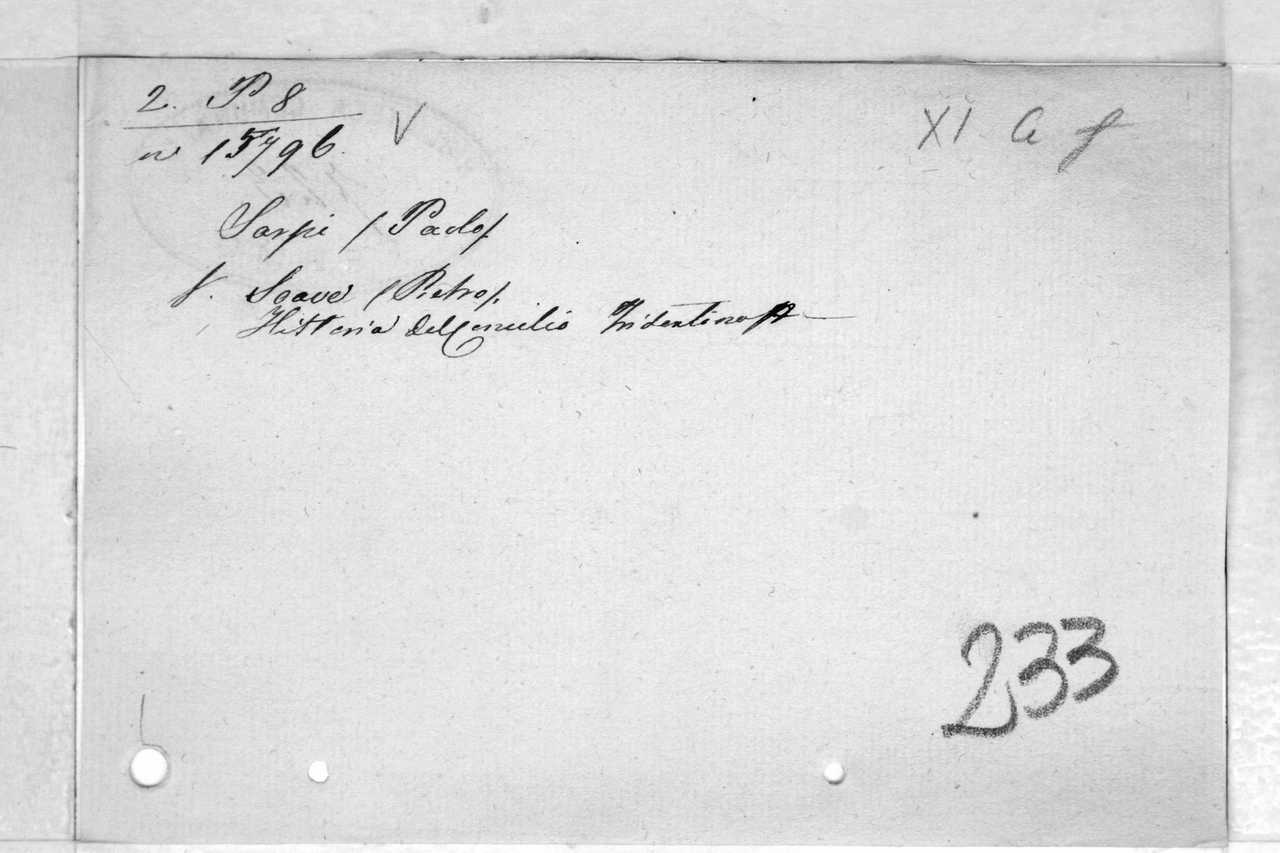 2. P. 8
V
XI a f
w 15796.
Sarpi /Paolo/.
f. Soave /Pietro/.
Histtoria del Concilio Tridentino
233